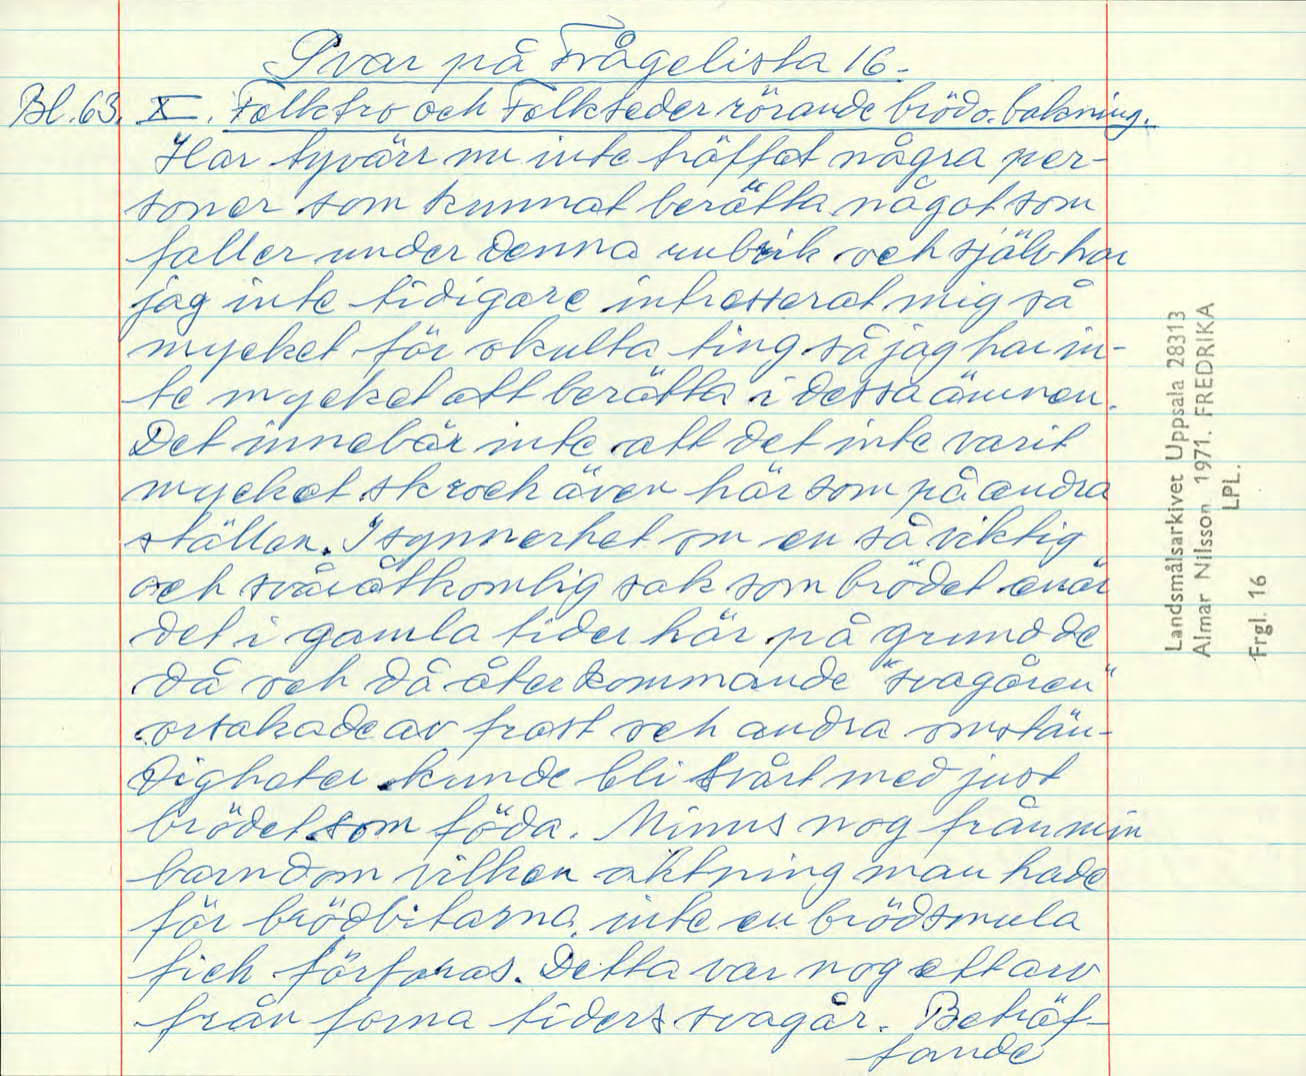 Svar på Frågelista 16.
Bl. 63. X. Folktro och Folkseder rörande bröd o. bakning.
Har tyvärr nu inte träffat några per-
soner som kunnat berätta något som
faller under denna rubrik och själv har
jag inte tidigare intresserat mig så
mycket för okulta ting så jag har in-
te mycket att berätta i dessa ämnen.
Det innebär inte att det inte varit
mycket skrock även här som på andra
ställen. I synnerhet om en så viktig
och svåråtkomlig sak som brödet enär
det i gamla tider här på grund de
då och då återkommande "svagåren"
orsakade av frost och andra omstän-
digheter kunde bli svårt med just
brödet som föda. Minns nog från min
barndom vilken aktning man hade
för brödbitarna, inte en brödsmula
fick förfaras. Detta var nog ett arv
från forna tiders svagår. Beträf-
fande
Landsmålsarkivet Uppsala 28313
Almar Nilsson 1971. FREDRIKA
LPL.
Frgl. 16